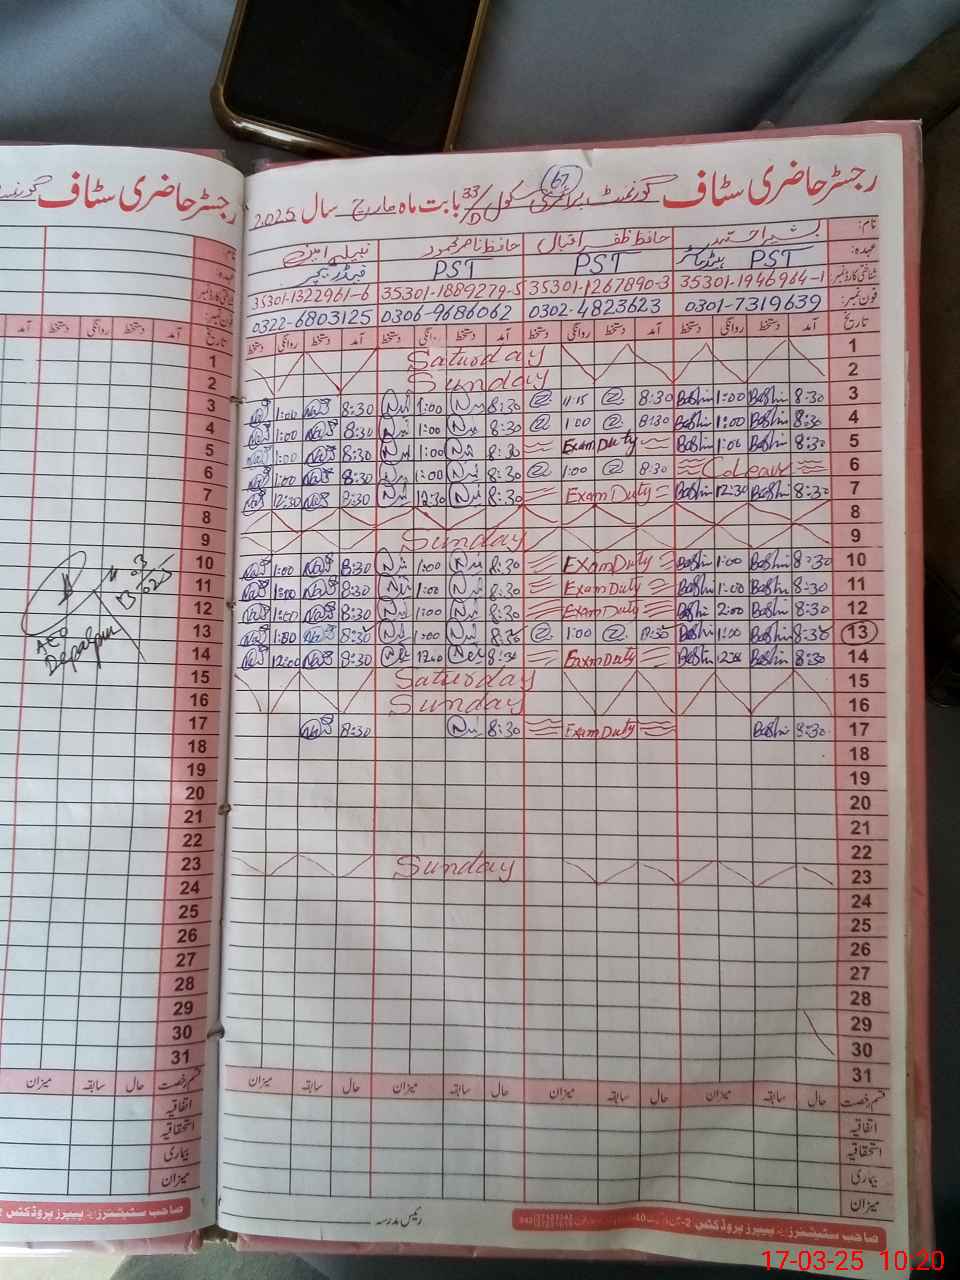 رجسٹر حاضری سٹاف گورنمنٹ پرائمری سکول 33/D بابت ماہ مارچ سال 2025
67
نام: بشیر احمد حافظ ظفر اقبال حافظ ناصر محمود نبیلہ امین
عہدہ: PST ہیڈ ماسٹر PST PST
شناختی کارڈ نمبر: 35301-1946964-1 35301-1267890-3 35301-1889279-5 35301-1322961-6
فون نمبر: 0301-7319639 0302-4823623 0306-9686062 0322-6803125
تاریخ آمد دستخط روانگی دستخط آمد دستخط روانگی دستخط آمد دستخط روانگی دستخط آمد دستخط روانگی دستخط
1 Saturday
2 Sunday
3 8:30 Bashir 1:00 Bashir 8:30 11:15 8:30 1:00 8:30 1:00
4 8:30 Bashir 1:00 Bashir 8:30 1:00 8:30 1:00 8:30 1:00
5 8:30 Bashir 1:00 Bashir Exam Duty 8:30 1:00 8:30 1:00
6 8:30 1:00 8:30 1:00 8:30 1:00
7 8:30 Bashir 12:30 Bashir Exam Duty 8:30 12:30 8:30 12:30
8
9 Sunday
10 8:30 Bashir 1:00 Bashir Exam Duty 8:30 1:00 8:30 1:00
11 8:30 Bashir 1:00 Bashir Exam Duty 8:30 1:00 8:30 1:00
12 8:30 Bashir 2:00 Bashir Exam Duty 8:30 1:00 8:30 1:00
13 8:30 Bashir 1:00 Bashir 8:30 1:00 8:30 1:00 8:30 1:00
14 8:30 Bashir Bashir Exam Duty 8:30 8:30 12:00
15 Saturday
16 Sunday
17 8:30 Bashir Exam Duty 8:30 8:30
18
19
20
21
22
23 Sunday
24
25
26
27
28
29
30
31
قسم رخصت حال سابقہ میزان حال سابقہ میزان حال سابقہ میزان حال سابقہ میزان
اتفاقیہ
استحقاقیہ
بیماری
میزان
رئیس مدرسہ
صاحب سٹیشنرز اینڈ پیپرز پروڈکٹس
رجسٹر حاضری سٹاف
نام:
عہدہ:
شناختی کارڈ نمبر:
فون نمبر:
تاریخ آمد دستخط روانگی دستخط آمد
1
2
3
4
5
6
7
8
9
10
11
12
13
14
15
16
17
18
19
20
21
22
23
24
25
26
27
28
29
30
31
AEO
Depalpur
قسم رخصت حال سابقہ میزان
اتفاقیہ
استحقاقیہ
بیماری
میزان
صاحب سٹیشنرز اینڈ پیپرز پروڈکٹس
17-03-25 10:20